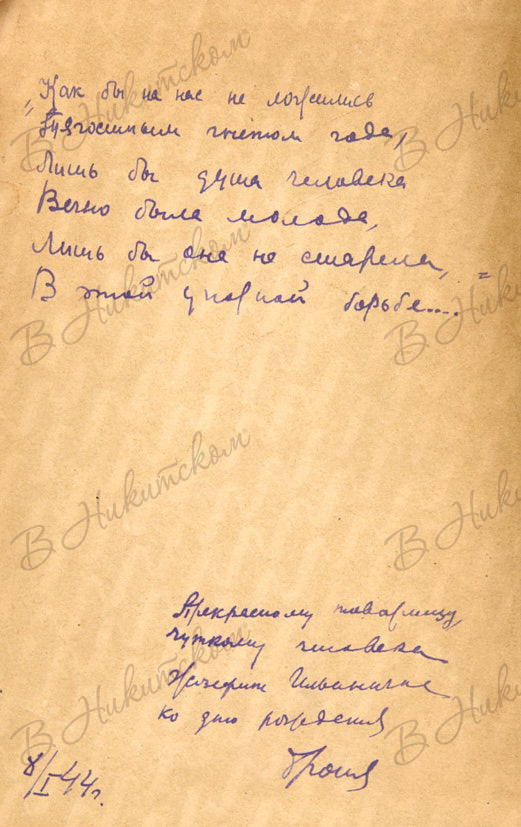 „Как бы на нас не ложились
Тягостным гнетом года,
Лишь бы душа человека
Вечно была молода,
Лишь бы она не старела, =
В этой упорной борьбе....
Прекрасному товарищу,
чуткому человека
Ильиничне
ко дню рождения
Броня
8/I 44г.
В Никитском
В Никитском
В Никитском
В Никитском
В Никитском
В Никитском
В Никитском
В Никитском